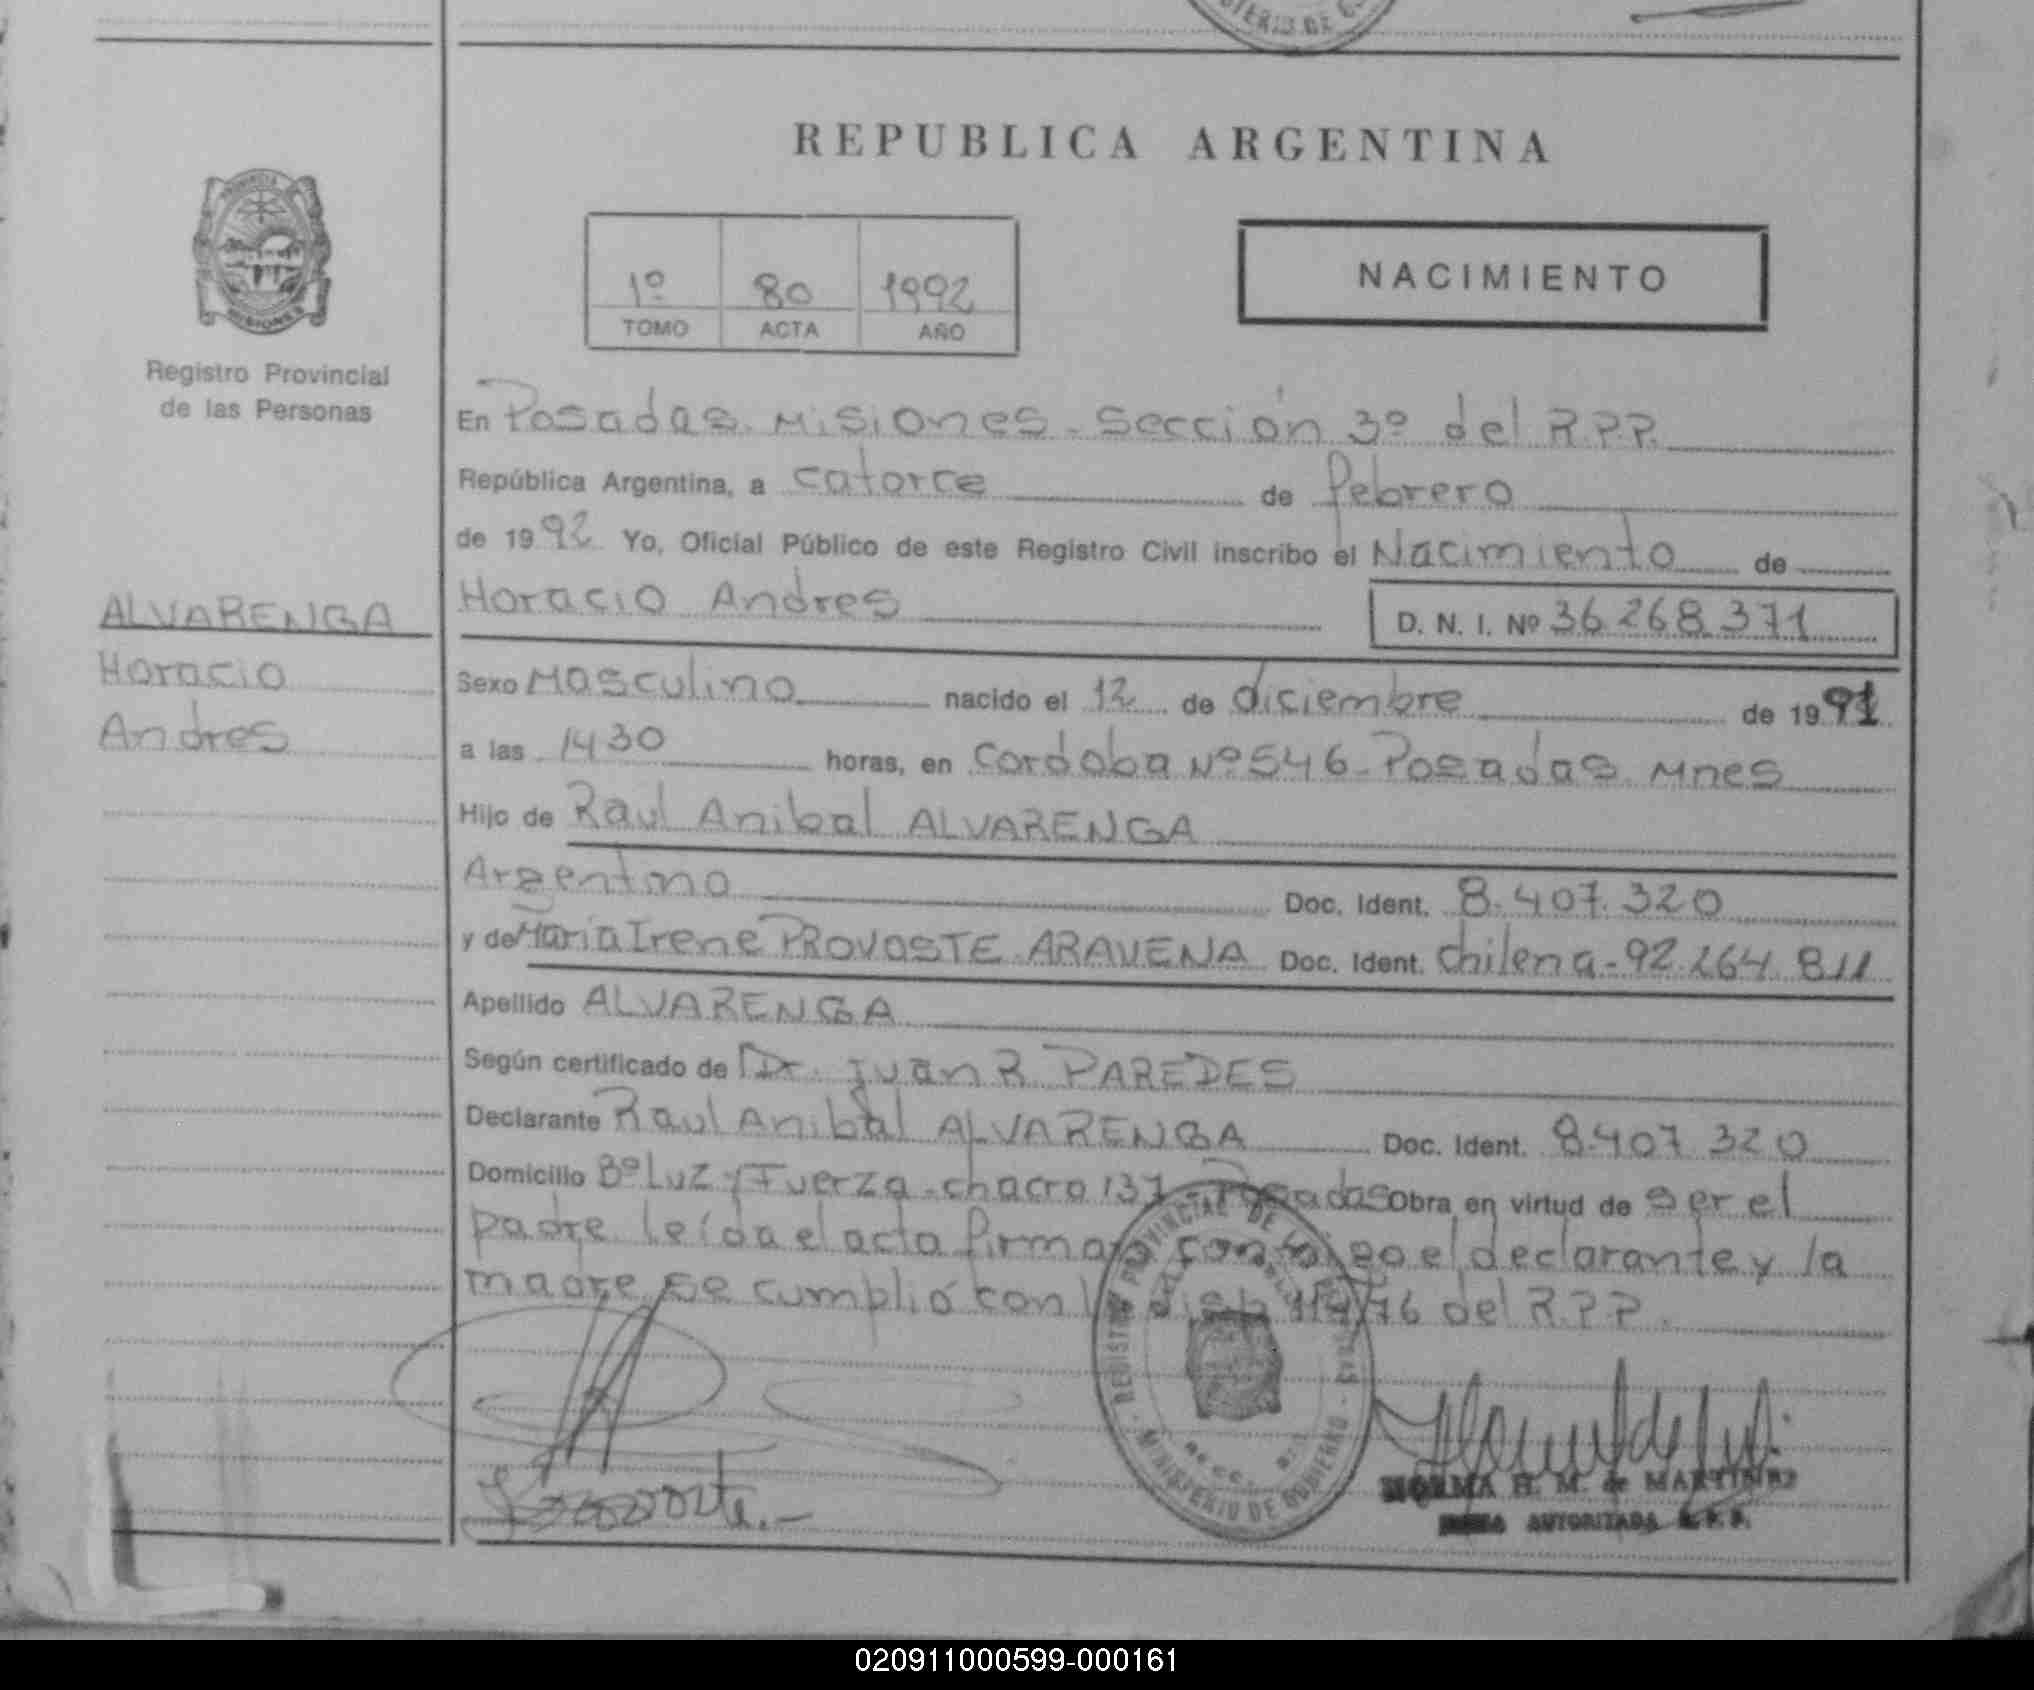 MINISTERIO DE GO
REPUBLICA ARGENTINA
PROVINCIA
MISIONES
Registro Provincial
de las Personas
1º 80 1992
TOMO ACTA AÑO
NACIMIENTO
En Posadas Misiones - Sección 3º del R.P.P.
República Argentina, a catorce de febrero
de 1992 Yo, Oficial Público de este Registro Civil inscribo el Nacimiento de
Horacio Andres D. N. I. Nº 36.268.371
ALVARENGA
Horacio
Andres
Sexo Masculino nacido el 12 de diciembre de 1991
a las 14 30 horas, en Cordoba Nº 546 - Posadas Mnes
Hijo de Raul Anibal ALVARENGA
Argentino Doc. Ident. 8.407.320
y de Maria Irene PROVOSTE ARAVENA Doc. Ident. chilena - 92.264.811
Apellido ALVARENGA
Según certificado de Dr. Juan R PAREDES
Declarante Raul Anibal ALVARENGA Doc. Ident. 8.407.320
Domicilio Bº Luz y Fuerza - chacra 137 - Posadas Obra en virtud de ser el
padre leída el acta firman conmigo el declarante y la
madre se cumplió con la disp 114/76 del R.P.P.
REGISTRO PROVINCIAL DE LAS PERSONAS
MINISTERIO DE GOBIERNO
NORMA H. M. de MARTINEZ
FIRMA AUTORIZADA R. P. P.
020911000599-000161